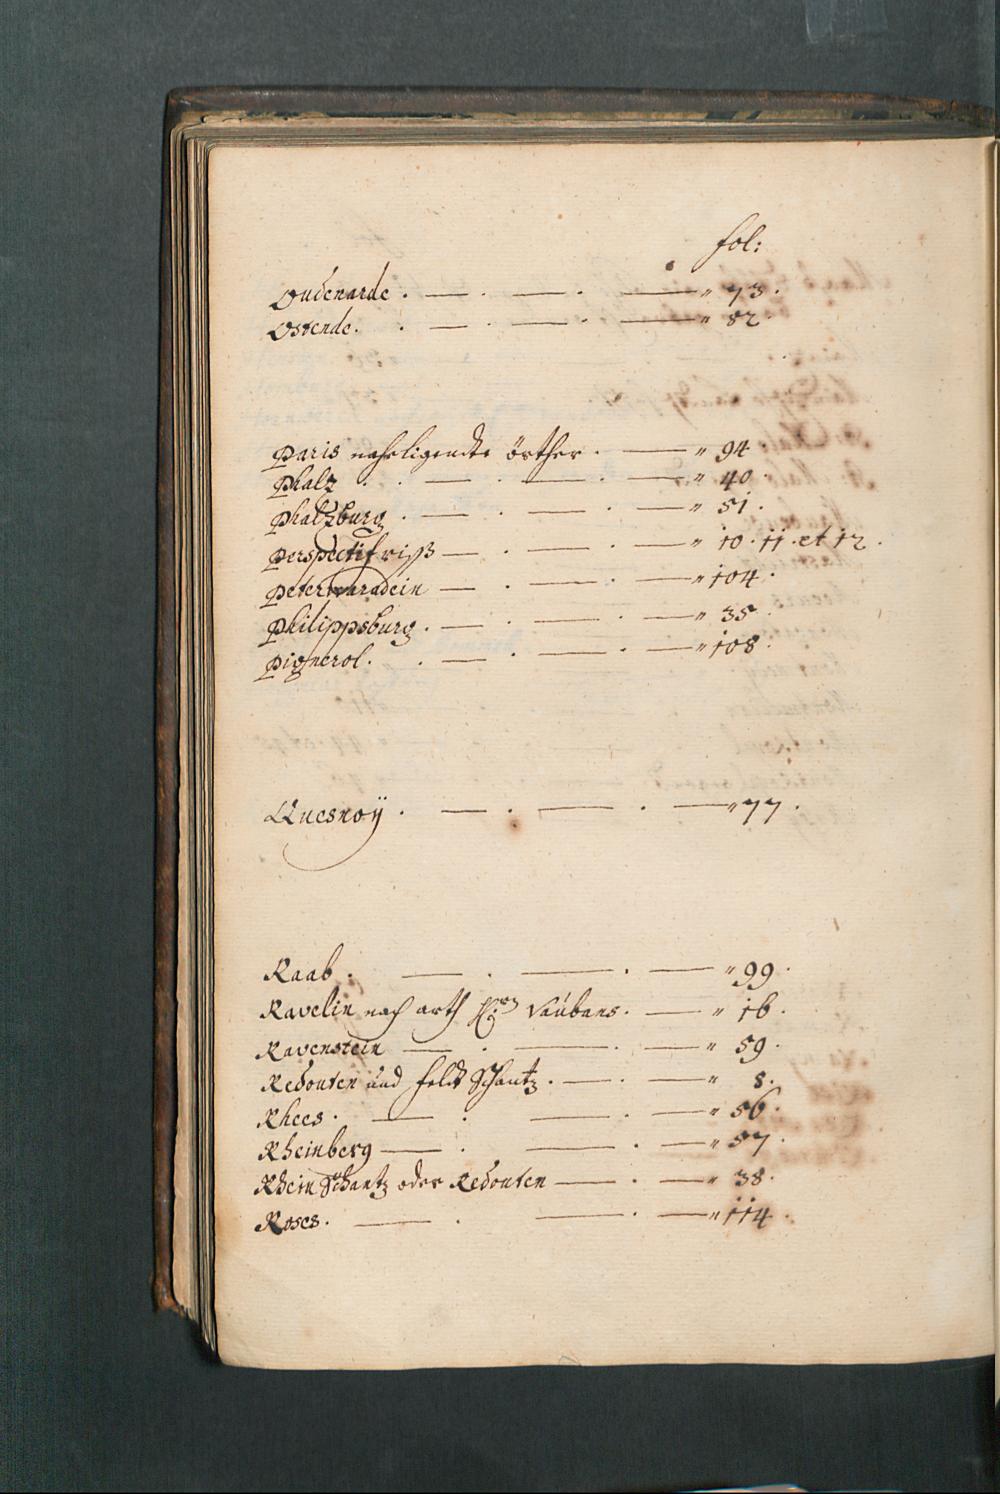 fol:
Oudenarde . — . — . — " 73.
Ostende. . — . — . — " 82.
Paris naheligendte örther . — " 94.
Phalz . . — . — . — " 40.
Phalzburg . — . — . — " 51.
Perspectif riß — . — . — " 10. 11. et 12.
Peterwaradein — . — . — " 104.
Philippsburg . — . — . — " 35.
Pignerol. . — . — . — " 108.
Quesnoÿ . — . — . — " 77.
Raab . — . — . — " 99.
Ravelin nach arth H:en Vaúbans. — " 16.
Ravenstein — . — . — " 59.
Redouten und feldt Schantz. — . — " 8.
Rhees . — . — . — " 56.
Rheinberg — . — . — " 57.
Rhein Schantz oder Redouten — . — " 38.
Roses. — . — . — " 114.